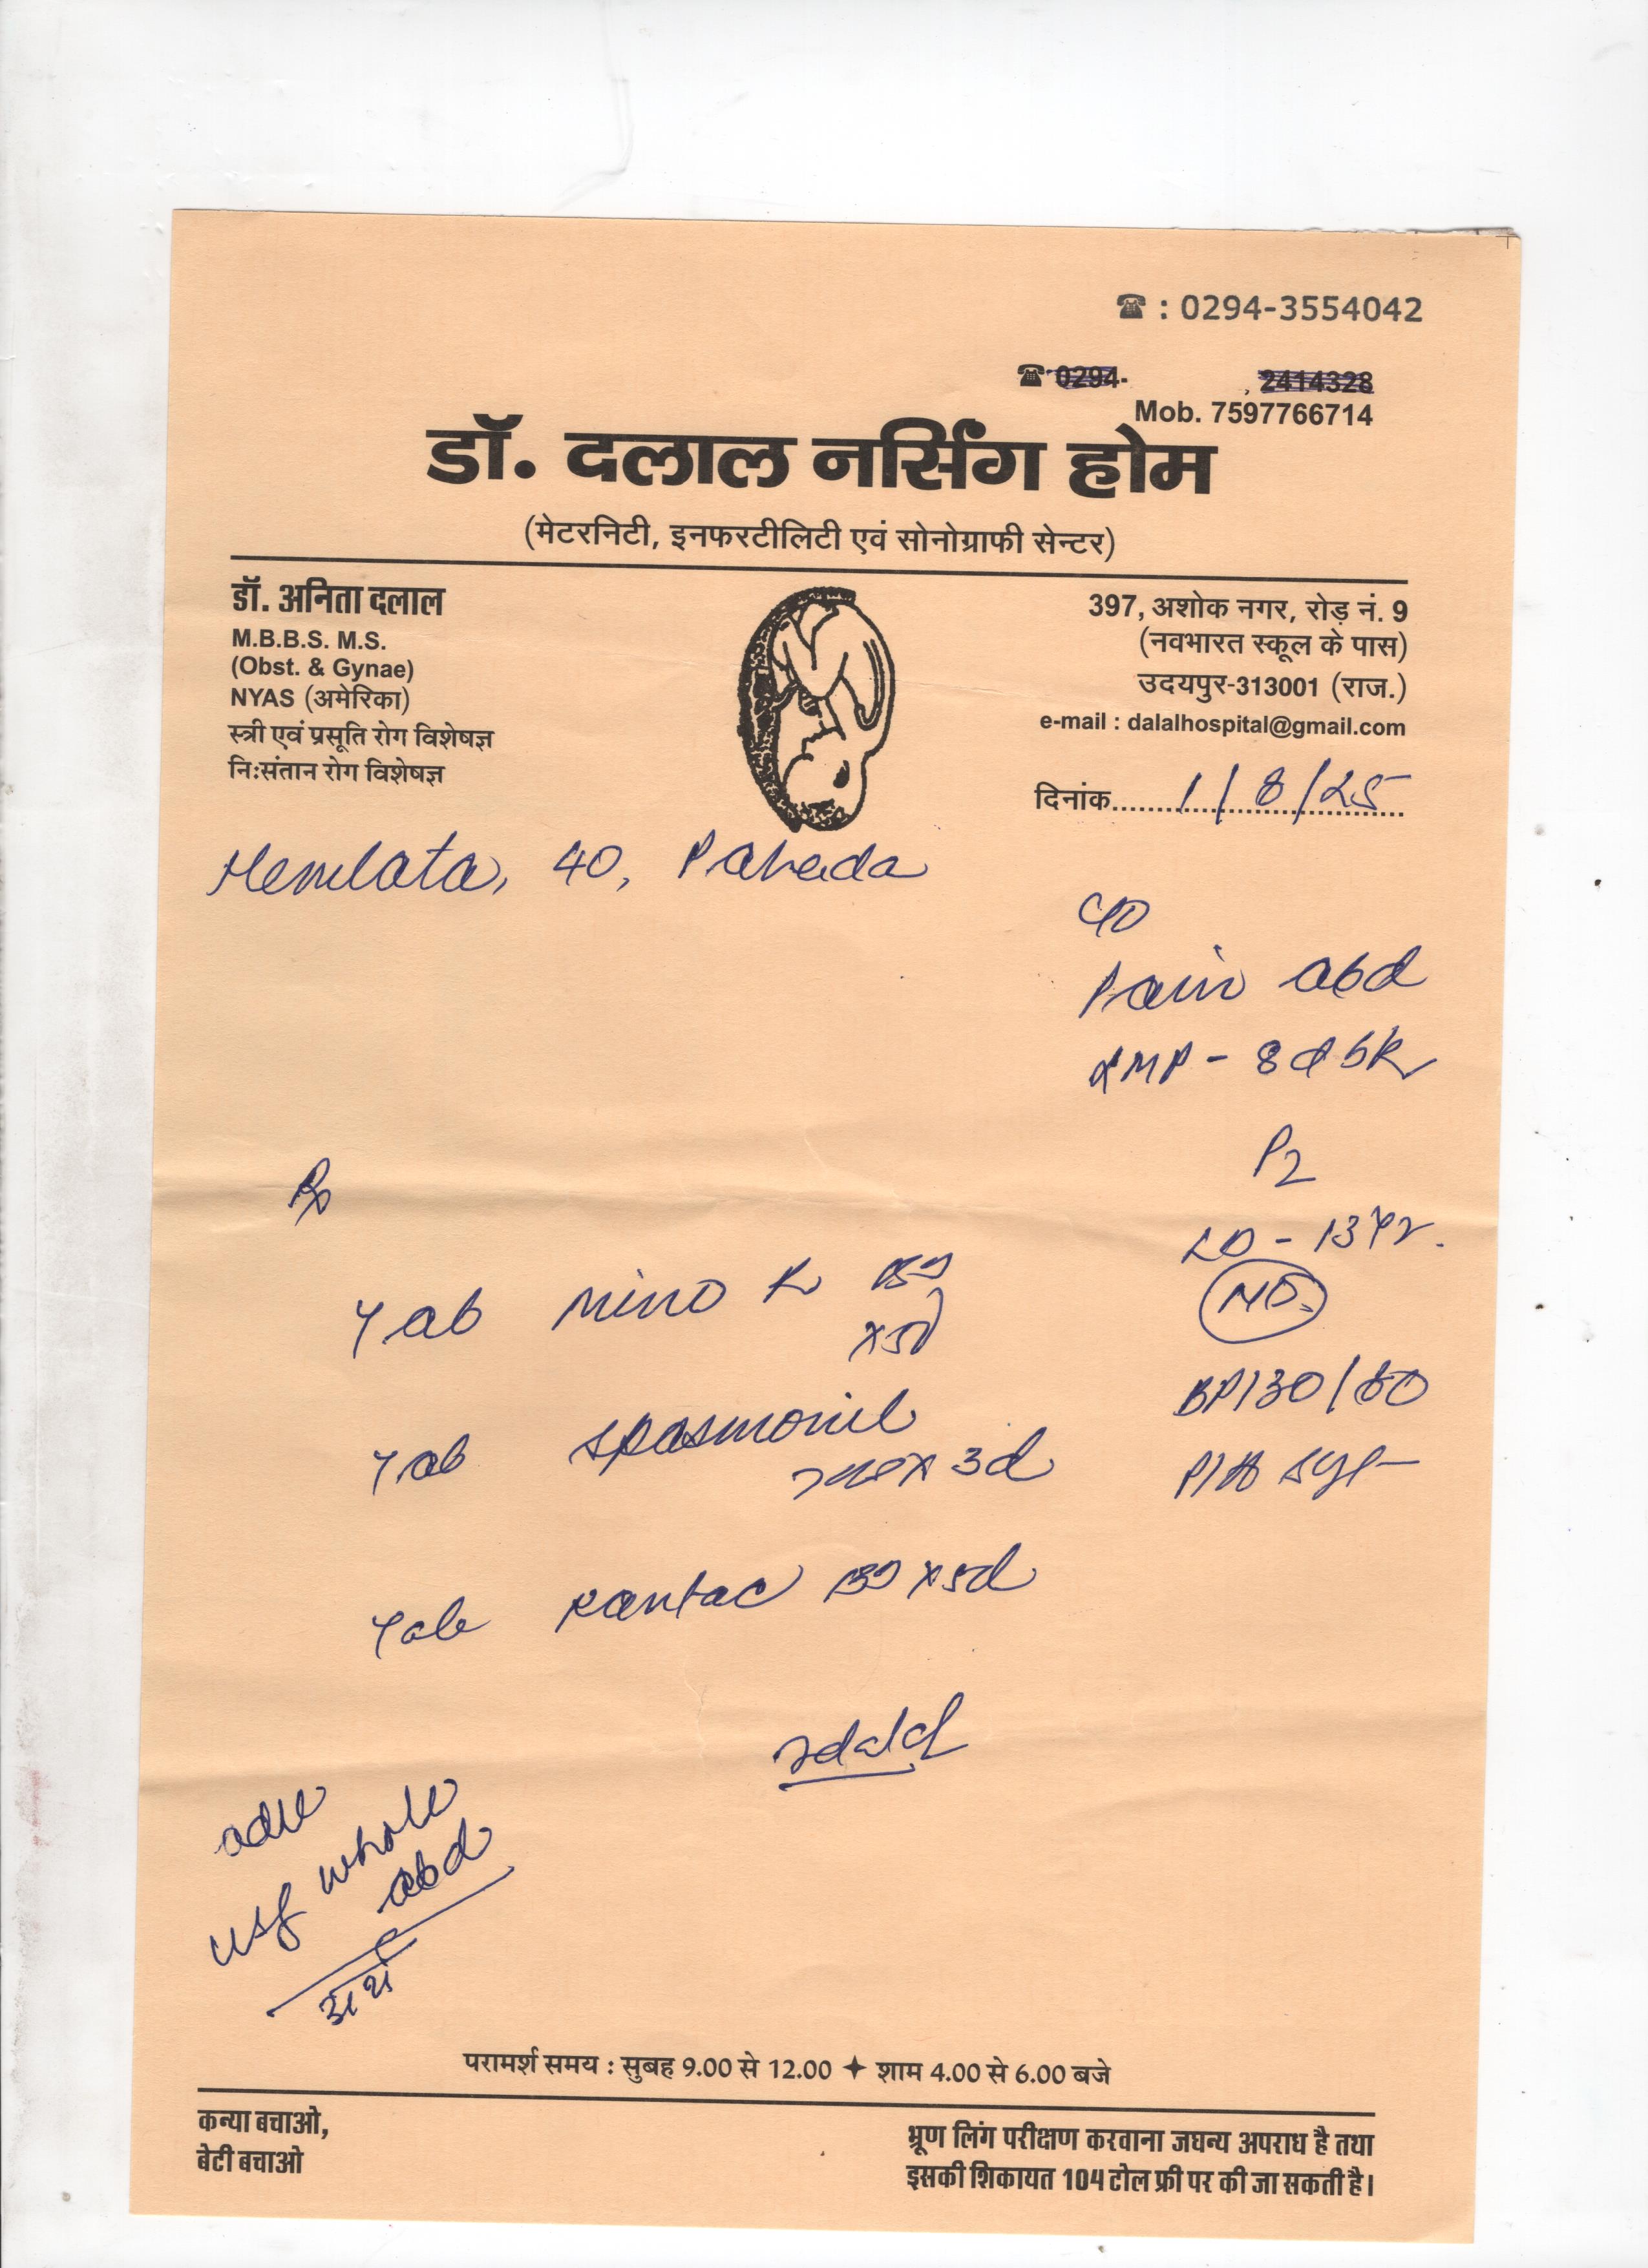 ☎ : 0294-3554042
☎ 0294- , 2414328
Mob. 7597766714
डॉ. दलाल नर्सिंग होम
(मेटरनिटी, इनफरटीलिटी एवं सोनोग्राफी सेन्टर)
डॉ. अनिता दलाल
M.B.B.S. M.S.
(Obst. & Gynae)
NYAS (अमेरिका)
स्त्री एवं प्रसूति रोग विशेषज्ञ
निःसंतान रोग विशेषज्ञ
397, अशोक नगर, रोड़ नं. 9
(नवभारत स्कूल के पास)
उदयपुर-313001 (राज.)
e-mail : dalalhospital@gmail.com
दिनांक 1/8/25
Hemlata, 40,
C/O
Pain abd
LMP - 8d bk
P2
LD - 13 Yr.
Rx
Tab Mino K BD
x5d
BP 130/80
Tab Spasmonil
x 3d
Tab Rantac BD x5d
adv
USG whole
abd
परामर्श समय : सुबह 9.00 से 12.00 ✦ शाम 4.00 से 6.00 बजे
कन्या बचाओ,
बेटी बचाओ
भ्रूण लिंग परीक्षण करवाना जघन्य अपराध है तथा
इसकी शिकायत 104 टोल फ्री पर की जा सकती है।